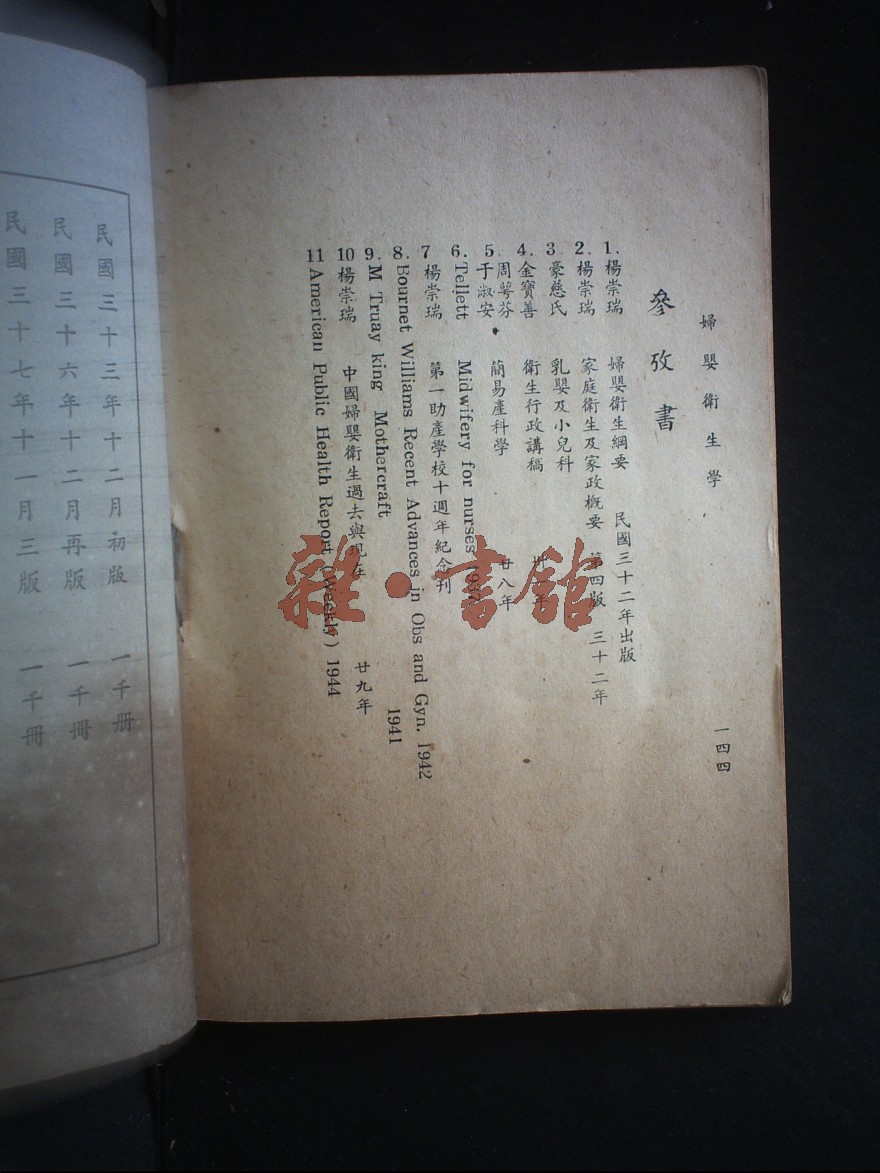 婦嬰衛生學
一四四
參攷書
1. 楊崇瑞 婦嬰衛生綱要 民國三十二年出版
2. 楊崇瑞 家庭衛生及家政概要 第四版 三十二年
3 豪慈氏 乳嬰及小兒科
4. 金寶善 衛生行政講稿
5. 周萼芬 于淑安 簡易產科學 廿八年
6. Tellett Midwifery for nurses
7 楊崇瑞 第一助產學校十週年紀念刊
8. Bournet Williams Recent Advances in Obs and Gyn. 1942
9. M Truay king Mothercraft 1941
10 楊崇瑞 中國婦嬰衛生過去與現在 廿九年
11 American Public Health Report (Weekly) 1944
雜·書館
民國三十三年十二月初版 一千冊
民國三十六年十二月再版 一千冊
民國三十七年十一月三版 一千冊